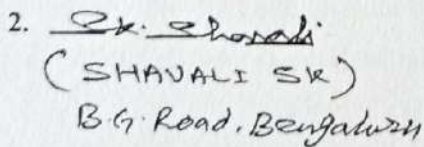 2. Sk. Shavali
(SHAVALI SK)
B.G. Road, Bengaluru